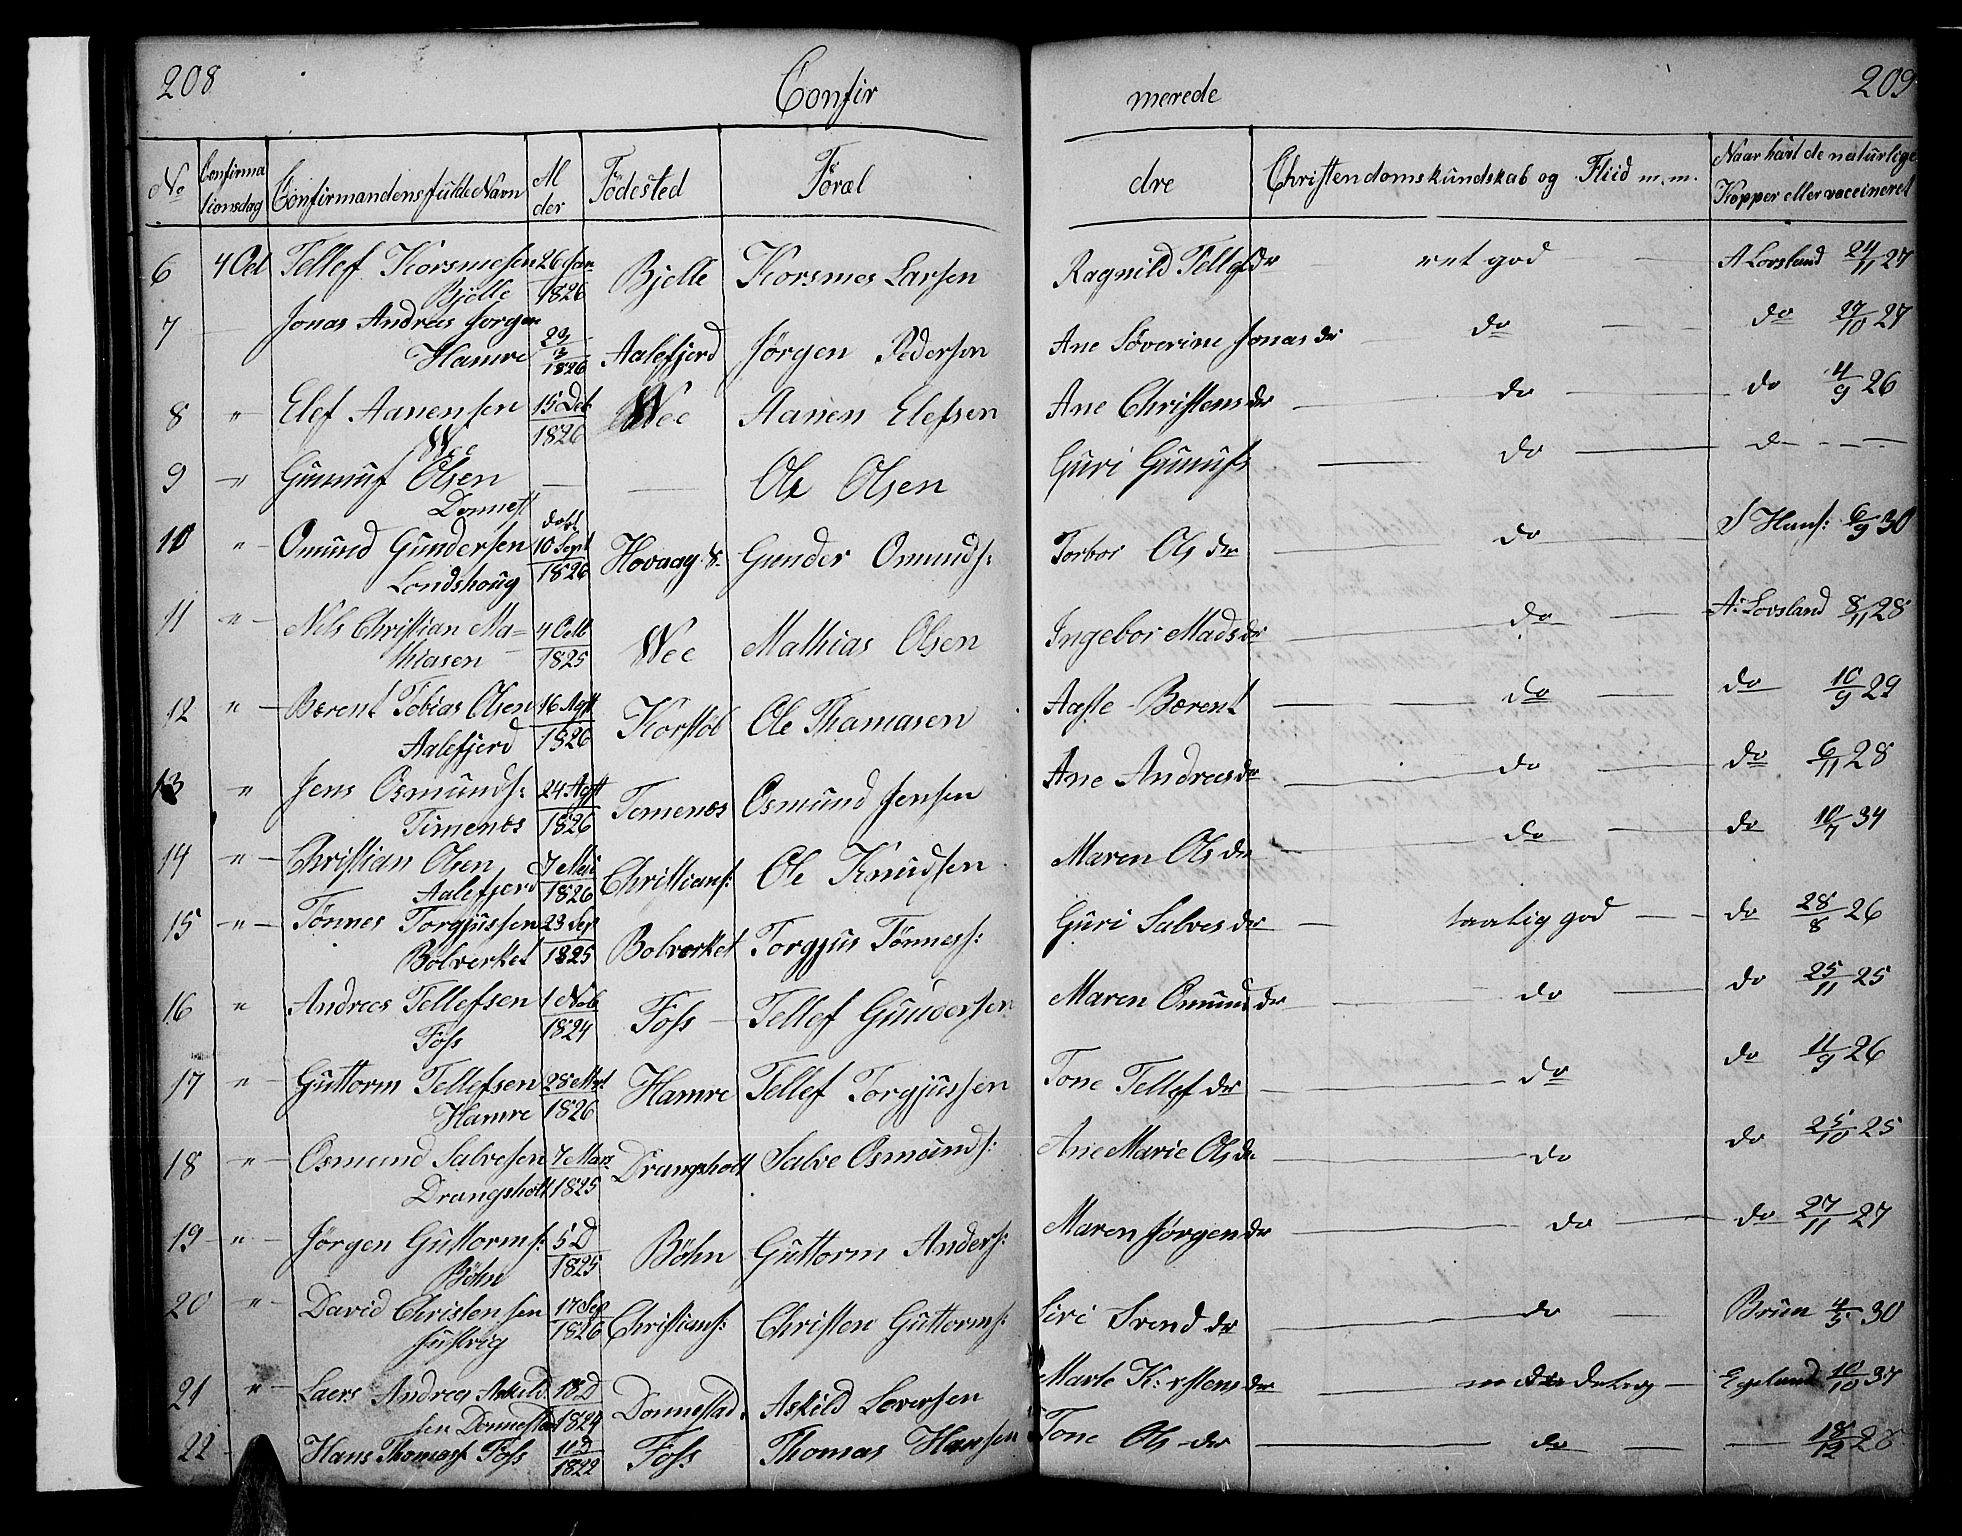 208
Confir
merede
209
No Confirma Confirmandens fulde Navn Al Fødested Foræl dre Christendomskundskab og Fliid m. m. Naar havt de naturlige
tionsdag der Kopper eller vaccineret
6 4 Oct Tellef Korsmesen 26 Jan Bjelle Korsmes Larsen Ragnild Tellefsdr ret god A Lovsland 24/11 27
Bjelle 1826
7 Jonas Andreas Jørgen 23/3 Aalefjerd Jørgen Pedersen Ane Søverine Jonas dr do do 27/10 27
Hamre 1826
8 " Elef Aanensen 15 Dec Wee Aanen Elefsen Ane Christens dr do do 4/9 26
Wee 1826
9 " Gunnuf Olsen — — Ole Olsen Guri Gunufs do do
Donnest
10 " Omund Gundersen dobt 10 Sept Hovaag S. Gunder Omunds: Torbor Ols dr do S Hans: 6/9 30
Londshoug 1826
11 " Nils Christian Ma- 4 Octb Wee Mathias Olsen Ingebor Mads dr do A: Lovsland 8/11 28
thiasen 1825
12 " Berent Tobias Olsen 16 Agst Korstøl Ole Thomasen Aaste Berent do do 10/9 29
Aalefjerd 1826
13 " Jens Osmunds: 24 Agst Temenes Osmund Jensen Ane Andreas dr do do 6/11 28
Timenes 1826
14 " Christian Olsen 7 Mai Christians: Ole Knudsen Maren Ols dr do do 10/7 34
Aalefjerd 1826
15 " Tønnes Torgjussen 23 Sep Bolverket Torgjus Tønness: Guri Salves dr taalig god do 28/8 26
Bolverket 1825
16 " Andreas Tellefsen 1 Nob Foss Tellef Gundersen Maren Omunds dr do do 25/11 25
Foss 1824
17 " Guttorm Tellefsen 28 Mrt. Hamre Tellef Torgjussen Tone Tellef dr do do 11/9 26
Hamre 1826
18 " Osmund Salvesen 7 Mars Drangsholt Salve Osmunds: Ane Marie Ols dr do do 25/10 25
Drangsholt 1825
19 " Jørgen Guttorms: 5 D Bøhn Guttorm Anders: Maren Jørgen dr do do 27/11 27
Bøhn 1825
20 " David Christensen 17 Sep Christians: Christen Guttorms: Siri Svend dr do Brun 4/5 30
Justvig 1826
21 " Laers Andreas Askild 18 D Donnestad Askild Leversen Marte K:rstens dr Egeland 10/10 37
sen Donnestad 1824
22 - Hans Thomass Foss 11 D Foss Thomas Hansen Tone Ols dr do 18/12 28
1822